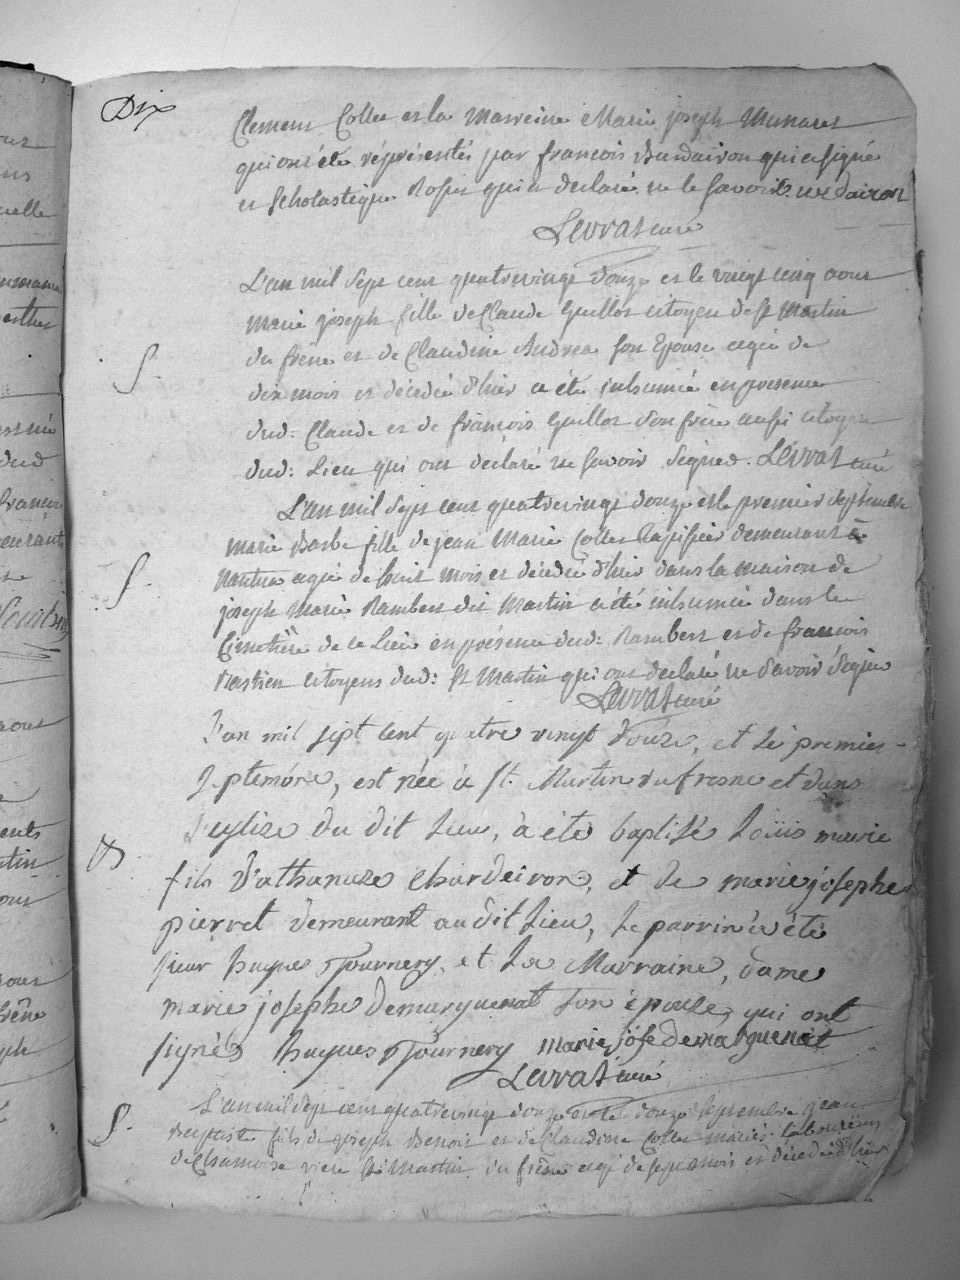 Dix
Clement Collet et la Marreine Marie joseph Munaret
qui ont été réprésentés par francois Burdairon qui a signé
et Scholastique Rosier qui a declaré ne le Savoir. Burdairon
Levrat curé
L'an mil Sept cent quatrevingt douze et le vingt cinq aout
Marie joseph fille de Claude Guillot citoyen de St Martin
du frène et de Claudine Andrea Son Epouse agée de
dix mois et décédée d'hier a été inhumée en presence
dud: Claude et de francois Guillot Son frère aussi citoyen
dud: Lieu qui ont déclaré ne Savoir Signer. Levrat curé
L'an mil Sept cent quatrevingt douze et le premier Septembre
marie Barbe fille de jean Marie Collet demeurant à
nantua agée de huit mois et décédée d'hier dans la maison de
joseph Marie Rambert dit Martin a été inhumée dans le
Cimetière de ce Lieu en présence dud: Rambert et de francois
citoyens dud: St Martin qui ont déclaré ne Savoir Signer
Levrat curé
L'an mil sept cent quatre vingt douze, et le premier
Septembre, est née à St. Martin du fresne et dans
l'eglize du dit Lieu, à été baptisé Loüis marie
fils d'athanaze Chardeiron, et de marie josephe
pierret demeurant au dit Lieu, Le parrin a été
sieur hugues Tournery, et La Marraine, dame
marie josephe demarguenat Son épouse, qui ont
signés hugues Tournery marie jose demarguenat
Levrat curé
L'an mil Sept cent quatrevingt douze et le douze Septembre jean
Baptiste fils de joseph Benoit et de Claudine Collet mariés: laboureurs
de Chamoise rière St Martin du frêne agé de sept mois et décédé d'hier